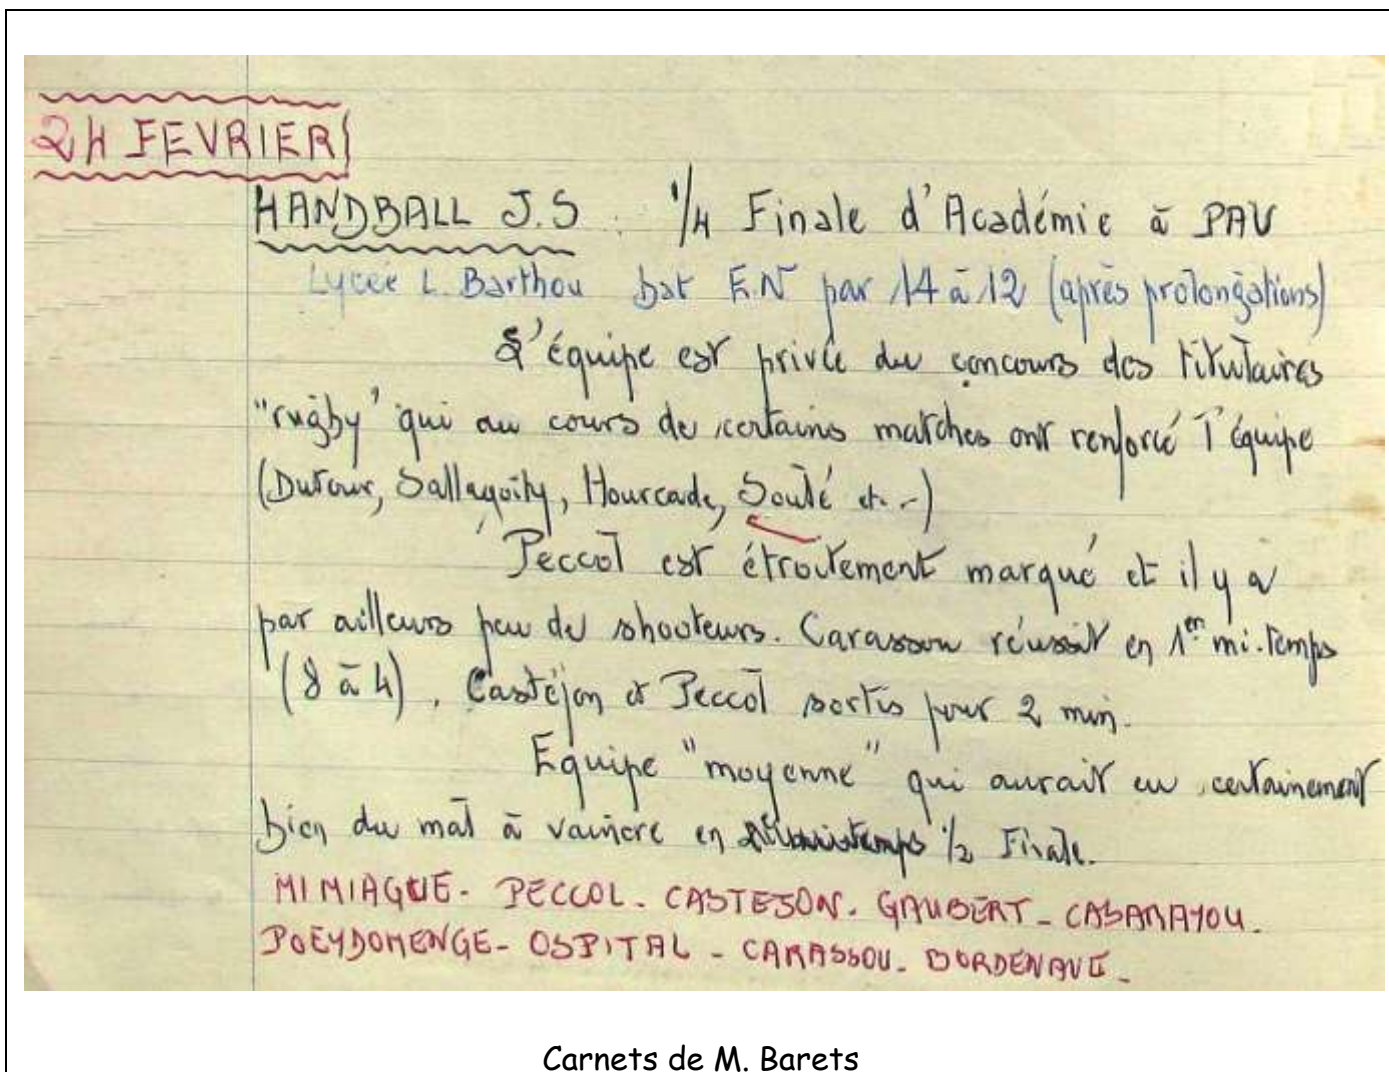 24 FEVRIER
HANDBALL J.S : 1/4 Finale d'Académie à PAU
Lycée L. Barthou bat E.N par 14 à 12 (après prolongations)
L'équipe est privée du concours des titulaires
"rugby" qui au cours de certains matches ont renforcé l'équipe
(Dufour, Sallagoïty, Hourcade, Soulé etc-)
Peccol est étroitement marqué et il y a
par ailleurs peu de shooteurs. Carassou réussit en 1er mi-temps
(8 à 4). Castéjon et Peccol sortis pour 2 min.
Equipe "moyenne" qui aurait eu certainement
bien du mal à vaincre en 1/2 Finale.
MIMIAGUE - PECCOL - CASTEJON - GAUBERT - CASAMAYOU -
POEYDOMENGE - OSPITAL - CARASSOU - BORDENAVE -
Carnets de M. Barets